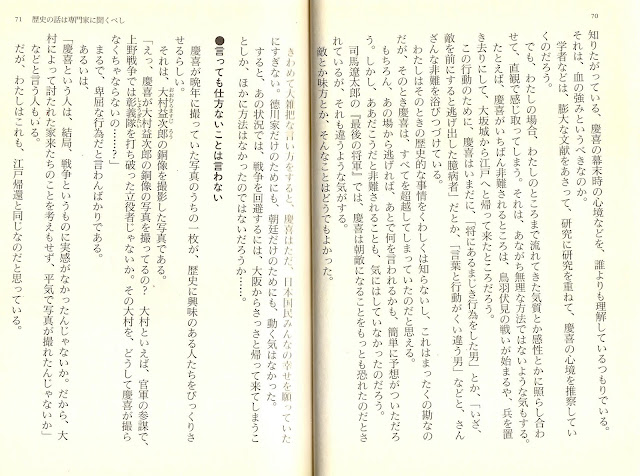 70
知りたがっている、慶喜の幕末時の心境などを、誰よりも理解しているつもりでいる。
それは、血の強みというべきなのか。
学者などは、膨大な文献をあさって、研究に研究を重ねて、慶喜の心境を推察してい
くのだろう。
でも、わたしの場合、わたしのところまで流れてきた気質とか感性とかに照らし合わ
せて、直観で感じ取ってしまう。それは、あながち無理な方法ではないような気もする。
たとえば、慶喜がいちばん非難されるところは、鳥羽伏見の戦いが始まるや、兵を置
き去りにして、大坂城から江戸へと帰って来たところだろう。
この行動のために、慶喜はいまだに、「将にあるまじき行為をした男」とか、「いざ、
敵を前にすると逃げ出した臆病者」だとか、「言葉と行動がくい違う男」などと、さん
ざんな非難を浴びつづけている。
わたしはそのときの歴史的な事情をくわしくは知らないし、これはまったくの勘なの
だが、そのとき慶喜は、すべてを超越してしまっていたのだと思える。
もちろん、あの場から逃げれば、あとで何を言われるかも、簡単に予想がついただろ
う。しかし、ああだこうだと非難されることも、気にはしていなかったのだろう。
司馬遼太郎の『最後の将軍』では、慶喜は朝敵になることをもっとも恐れたのだとさ
れているが、それも違うような気がする。
敵とか味方とか、そんなことはどうでもよかった。
71 歴史の話は専門家に聞くべし
きわめて大雑把な言い方をすると、慶喜はただ、日本国民みんなの幸せを願っていた
にすぎない。徳川家だけのためにも、朝廷だけのためにも、動く気はなかった。
すると、あの状況では、戦争を回避するには、大阪からさっさと帰って来てしまうこ
としか、ほかに方法はなかったのではないだろうか……。
●言っても仕方ないことは言わない
慶喜が晩年に撮っていた写真のうちの一枚が、歴史に興味のある人たちをびっくりさ
せるらしい。
それは、大村益次郎の銅像を撮影した写真である。
「えっ、慶喜が大村益次郎の銅像の写真を撮ってるの? 大村といえば、官軍の参謀で、
上野戦争では彰義隊を打ち破った立役者じゃないか。その大村を、どうして慶喜が撮ら
なくちゃならないの……?」
まるで、卑屈な行為だと言わんばかりである。
あるいは、
「慶喜という人は、結局、戦争というものに実感がなかったんじゃないか。だから、大
村によって討たれた家来たちのことを考えもせず、平気で写真が撮れたんじゃないか」
などと言う人もいる。
だが、わたしはこれも、江戸帰還と同じなのだと思っている。